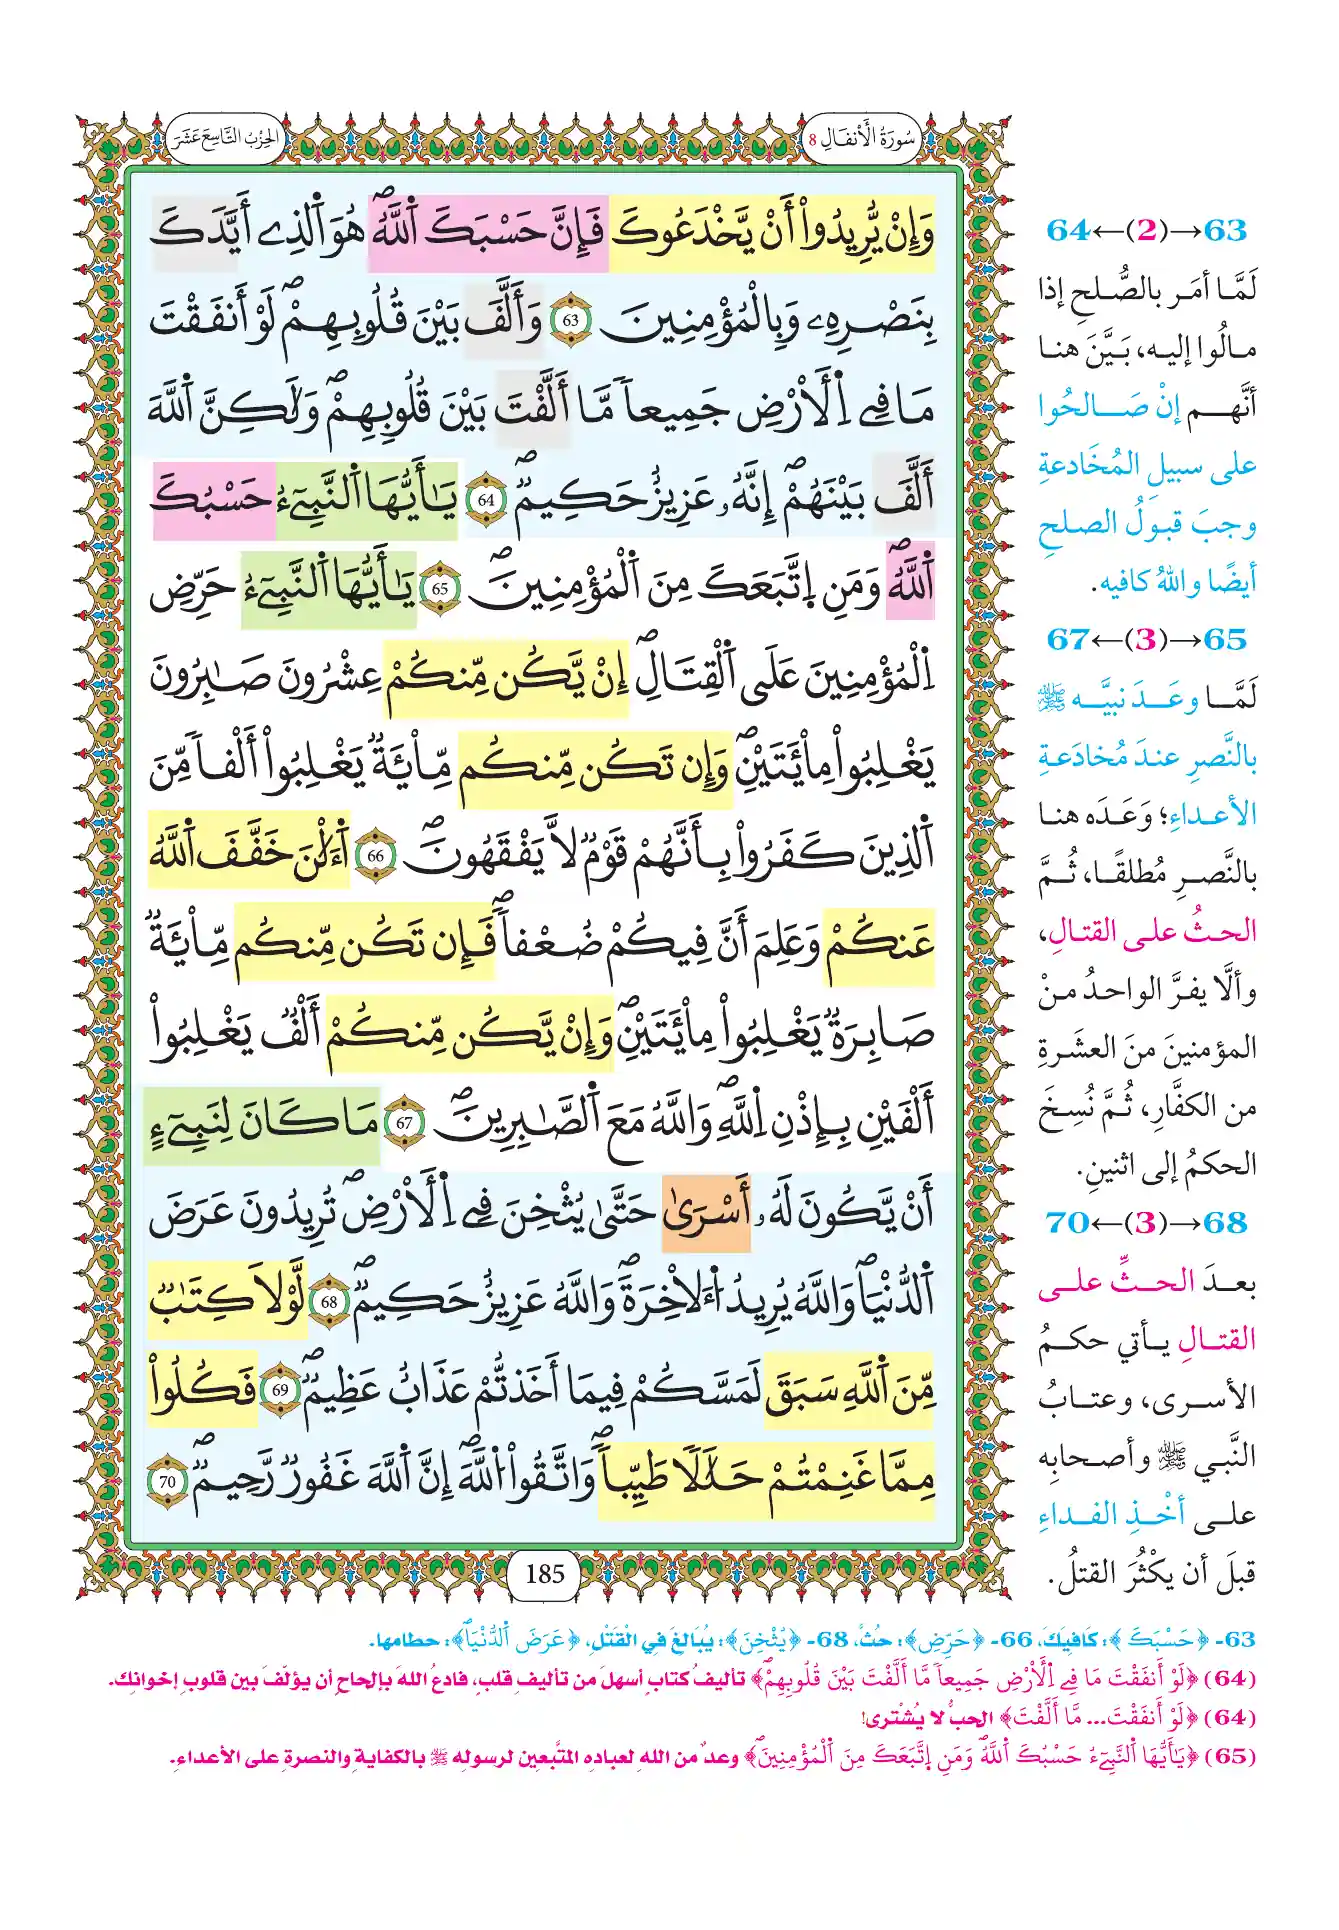 سُورَةُ الْأَنفَالِ 8
الحِزْبُ التَّاسِعَ عَشَرَ
وَإِنْ يُّرِيدُواْ أَنْ يَّخْدَعُوكَ فَإِنَّ حَسْبَكَ اَ۬للَّهُۖ هُوَ اَ۬لذِے أَيَّدَكَ
بِنَصْرِهِۦ وَبِالْمُؤْمِنِينَ 63 وَأَلَّفَ بَيْنَ قُلُوبِهِمْۖ لَوْ أَنفَقْتَ
مَا فِے اِ۬لْأَرْضِ جَمِيعاٗ مَّا أَلَّفْتَ بَيْنَ قُلُوبِهِمْۖ وَلَٰكِنَّ اَ۬للَّهَ
أَلَّفَ بَيْنَهُمْۖ إِنَّهُۥ عَزِيزٌ حَكِيمٞۖ 64 يَٰأَيُّهَا اَ۬لنَّبِيٓءُ حَسْبُكَ
اَ۬للَّهُۖ وَمَنِ اِ۪تَّبَعَكَ مِنَ اَ۬لْمُؤْمِنِينَۖ 65 يَٰأَيُّهَا اَ۬لنَّبِيٓءُ حَرِّضِ
اِ۬لْمُؤْمِنِينَ عَلَى اَ۬لْقِتَالِۖ إِنْ يَّكُن مِّنكُمْ عِشْرُونَ صَٰبِرُونَ
يَغْلِبُواْ مِاْئَتَيْنِۖ وَإِن تَكُن مِّنكُم مِّاْئَةٞ يَغْلِبُواْ أَلْفاٗ مِّنَ
اَ۬لذِينَ كَفَرُواْ بِأَنَّهُمْ قَوْمٞ لَّا يَفْقَهُونَۖ 66 اَ۬لْـَٰٔنَ خَفَّفَ اَ۬للَّهُ
عَنكُمْ وَعَلِمَ أَنَّ فِيكُمْ ضُعْفاٗۖ فَإِن تَكُن مِّنكُم مِّاْئَةٞ
صَابِرَةٞ يَغْلِبُواْ مِاْئَتَيْنِۖ وَإِنْ يَّكُن مِّنكُمْ أَلْفٞ يَغْلِبُواْ
أَلْفَيْنِ بِإِذْنِ اِ۬للَّهِۖ وَاللَّهُ مَعَ اَ۬لصَّٰبِرِينَۖ 67 مَا كَانَ لِنَبِيٓءٍ
أَنْ يَّكُونَ لَهُۥ أَسْرَىٰ حَتَّىٰ يُثْخِنَ فِے اِ۬لْأَرْضِۖ تُرِيدُونَ عَرَضَ
اَ۬لدُّنْيَاۖ وَاللَّهُ يُرِيدُ اُ۬لْأٓخِرَةَۖ وَاللَّهُ عَزِيزٌ حَكِيمٞۖ 68 لَّوْلَا كِتَٰبٞ
مِّنَ اَ۬للَّهِ سَبَقَ لَمَسَّكُمْ فِيمَا أَخَذتُّمْ عَذَابٌ عَظِيمٞۖ 69 فَكُلُواْ
مِمَّا غَنِمْتُمْ حَلَٰلاٗ طَيِّباٗۖ وَاتَّقُواْ اُ۬للَّهَۖ إِنَّ اَ۬للَّهَ غَفُورٞ رَّحِيمٞۖ 70
185
63→(2)←64
لَمَّا أمَر بالصُّلحِ إذا
مالُوا إليه، بَيَّنَ هنا
أنَّهم إنْ صَالحُوا
على سبيلِ المُخَادعةِ
وجبَ قبولُ الصلحِ
أيضًا واللهُ كافيه.
65→(3)←67
لَمَّا وعَدَ نبيَّه ﷺ
بالنَّصرِ عندَ مُخادَعةِ
الأعداءِ؛ وَعَدَه هنا
بالنَّصرِ مُطلقًا، ثُمَّ
الحثُّ على القتالِ،
وألَّا يفرَّ الواحدُ منْ
المؤمنينَ منَ العشَرةِ
من الكفَّارِ، ثُمَّ نُسِخَ
الحكمُ إلى اثنينِ.
68→(3)←70
بعدَ الحثِّ على
القتالِ يأتي حكمُ
الأسرى، وعتابُ
النَّبي ﷺ وأصحابِه
على أخْذِ الفداءِ
قبلَ أن يكْثُرَ القتلُ.
63- ﴿حَسْبَكَ﴾: كَافِيكَ، 66- ﴿حَرِّضِ﴾: حُثَّ، 68- ﴿يُثْخِنَ﴾: يُبَالغَ فِي الْقَتْلِ، ﴿عَرَضَ اَ۬لدُّنْيَاۖ﴾: حطامها.
(64) ﴿لَوْ أَنفَقْتَ مَا فِے اِ۬لْأَرْضِ جَمِيعاٗ مَّا أَلَّفْتَ بَيْنَ قُلُوبِهِمْۖ﴾ تأليفُ كتابٍ أسهلُ من تأليفِ قلبٍ، فادعُ اللهَ بإلحاحٍ أن يؤلّفَ بين قلوبِ إخوانِك.
(64) ﴿لَوْ أَنفَقْتَ... مَّا أَلَّفْتَ﴾ الحبُّ لا يُشْترى!
(65) ﴿يَٰأَيُّهَا اَ۬لنَّبِيٓءُ حَسْبُكَ اَ۬للَّهُۖ وَمَنِ اِ۪تَّبَعَكَ مِنَ اَ۬لْمُؤْمِنِينَۖ﴾ وعدٌ من اللهِ لعبادِه المتَّبعين لرسولِه ﷺ بالكفايةِ والنصرةِ على الأعداءِ.